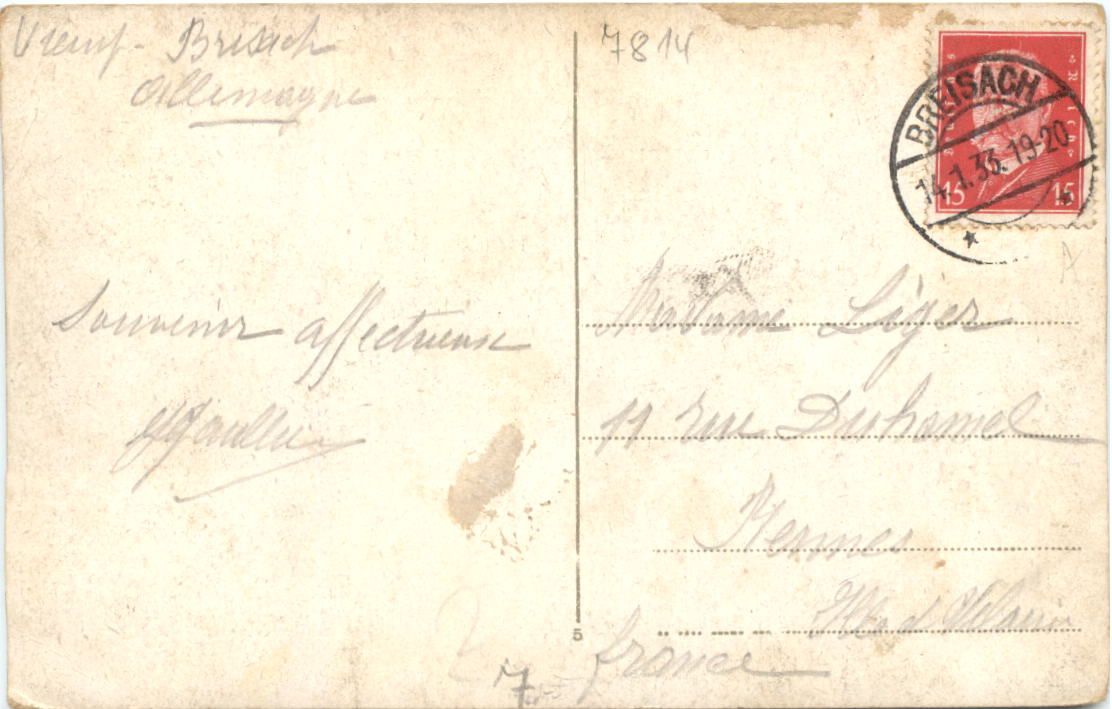 Vieux-Brisach
Allemagne
7814
BREISACH
14.1.33.19-20
15 15
Souvenir affectueux
Madame Léger
11 rue Duhamel
Rennes
Ille et Vilaine
France
5
7